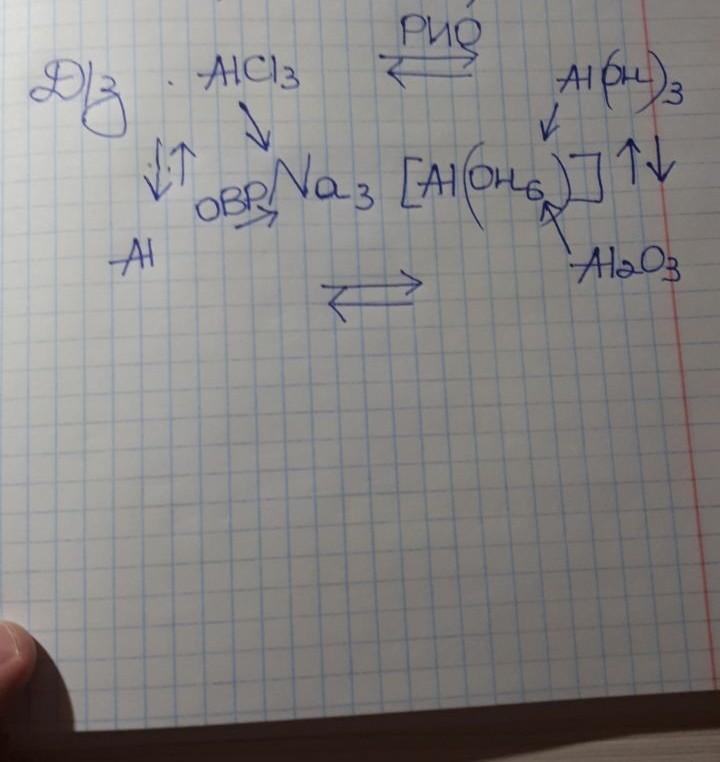 РИО
Д/з . AlCl3 ⇄ Al(OH)3
↓↑ ОВР Na3 [Al(OH6)] ↑↓
Al ⇄ Al2O3